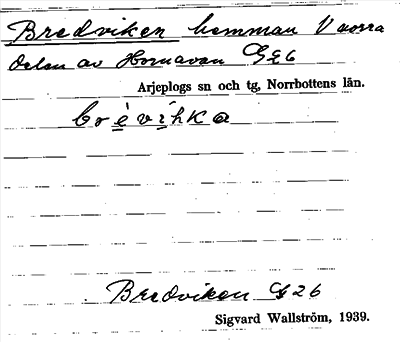 Bredviken hemman V norra
delen av Hornavan G26
Arjeplogs sn och tg, Norrbottens län.
Bredviken G26
Sigvard Wallström, 1939.